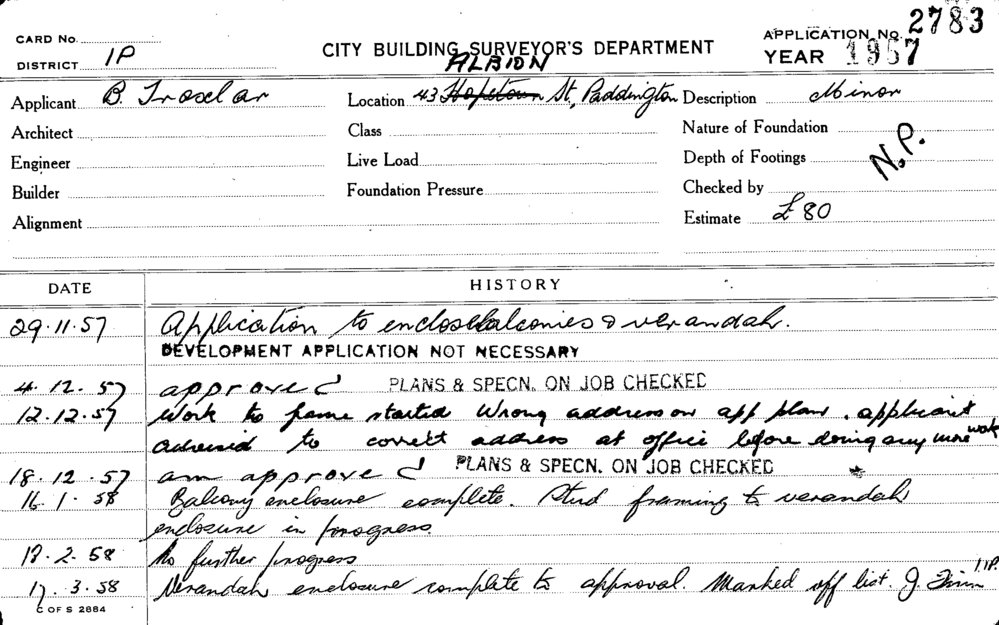 CARD No.
DISTRICT 1P
CITY BUILDING SURVEYOR'S DEPARTMENT
APPLICATION No. 2783
YEAR 1957
ALBION
Applicant B. Troselar
Location 43 Hopetown St, Paddington
Description Minor
Architect
Class
Nature of Foundation
Engineer
Live Load
Depth of Footings
N.P.
Builder
Foundation Pressure
Checked by
Alignment
Estimate £80
DATE HISTORY
29.11.57 Application to enclose balconies & verandah.
DEVELOPMENT APPLICATION NOT NECESSARY
4.12.57 approved PLANS & SPECN. ON JOB CHECKED
12.12.57 Work to frame started Wrong address on app plan. applicant
advised to correct address at office before doing any more work
18.12.57 am approved PLANS & SPECN. ON JOB CHECKED
16.1.58 Balcony enclosure complete. Stud framing to verandah
enclosure in progress.
13.2.58 No further progress
17.3.58 Verandah enclosure complete to approval. Marked off list. J.
C OF S 2884